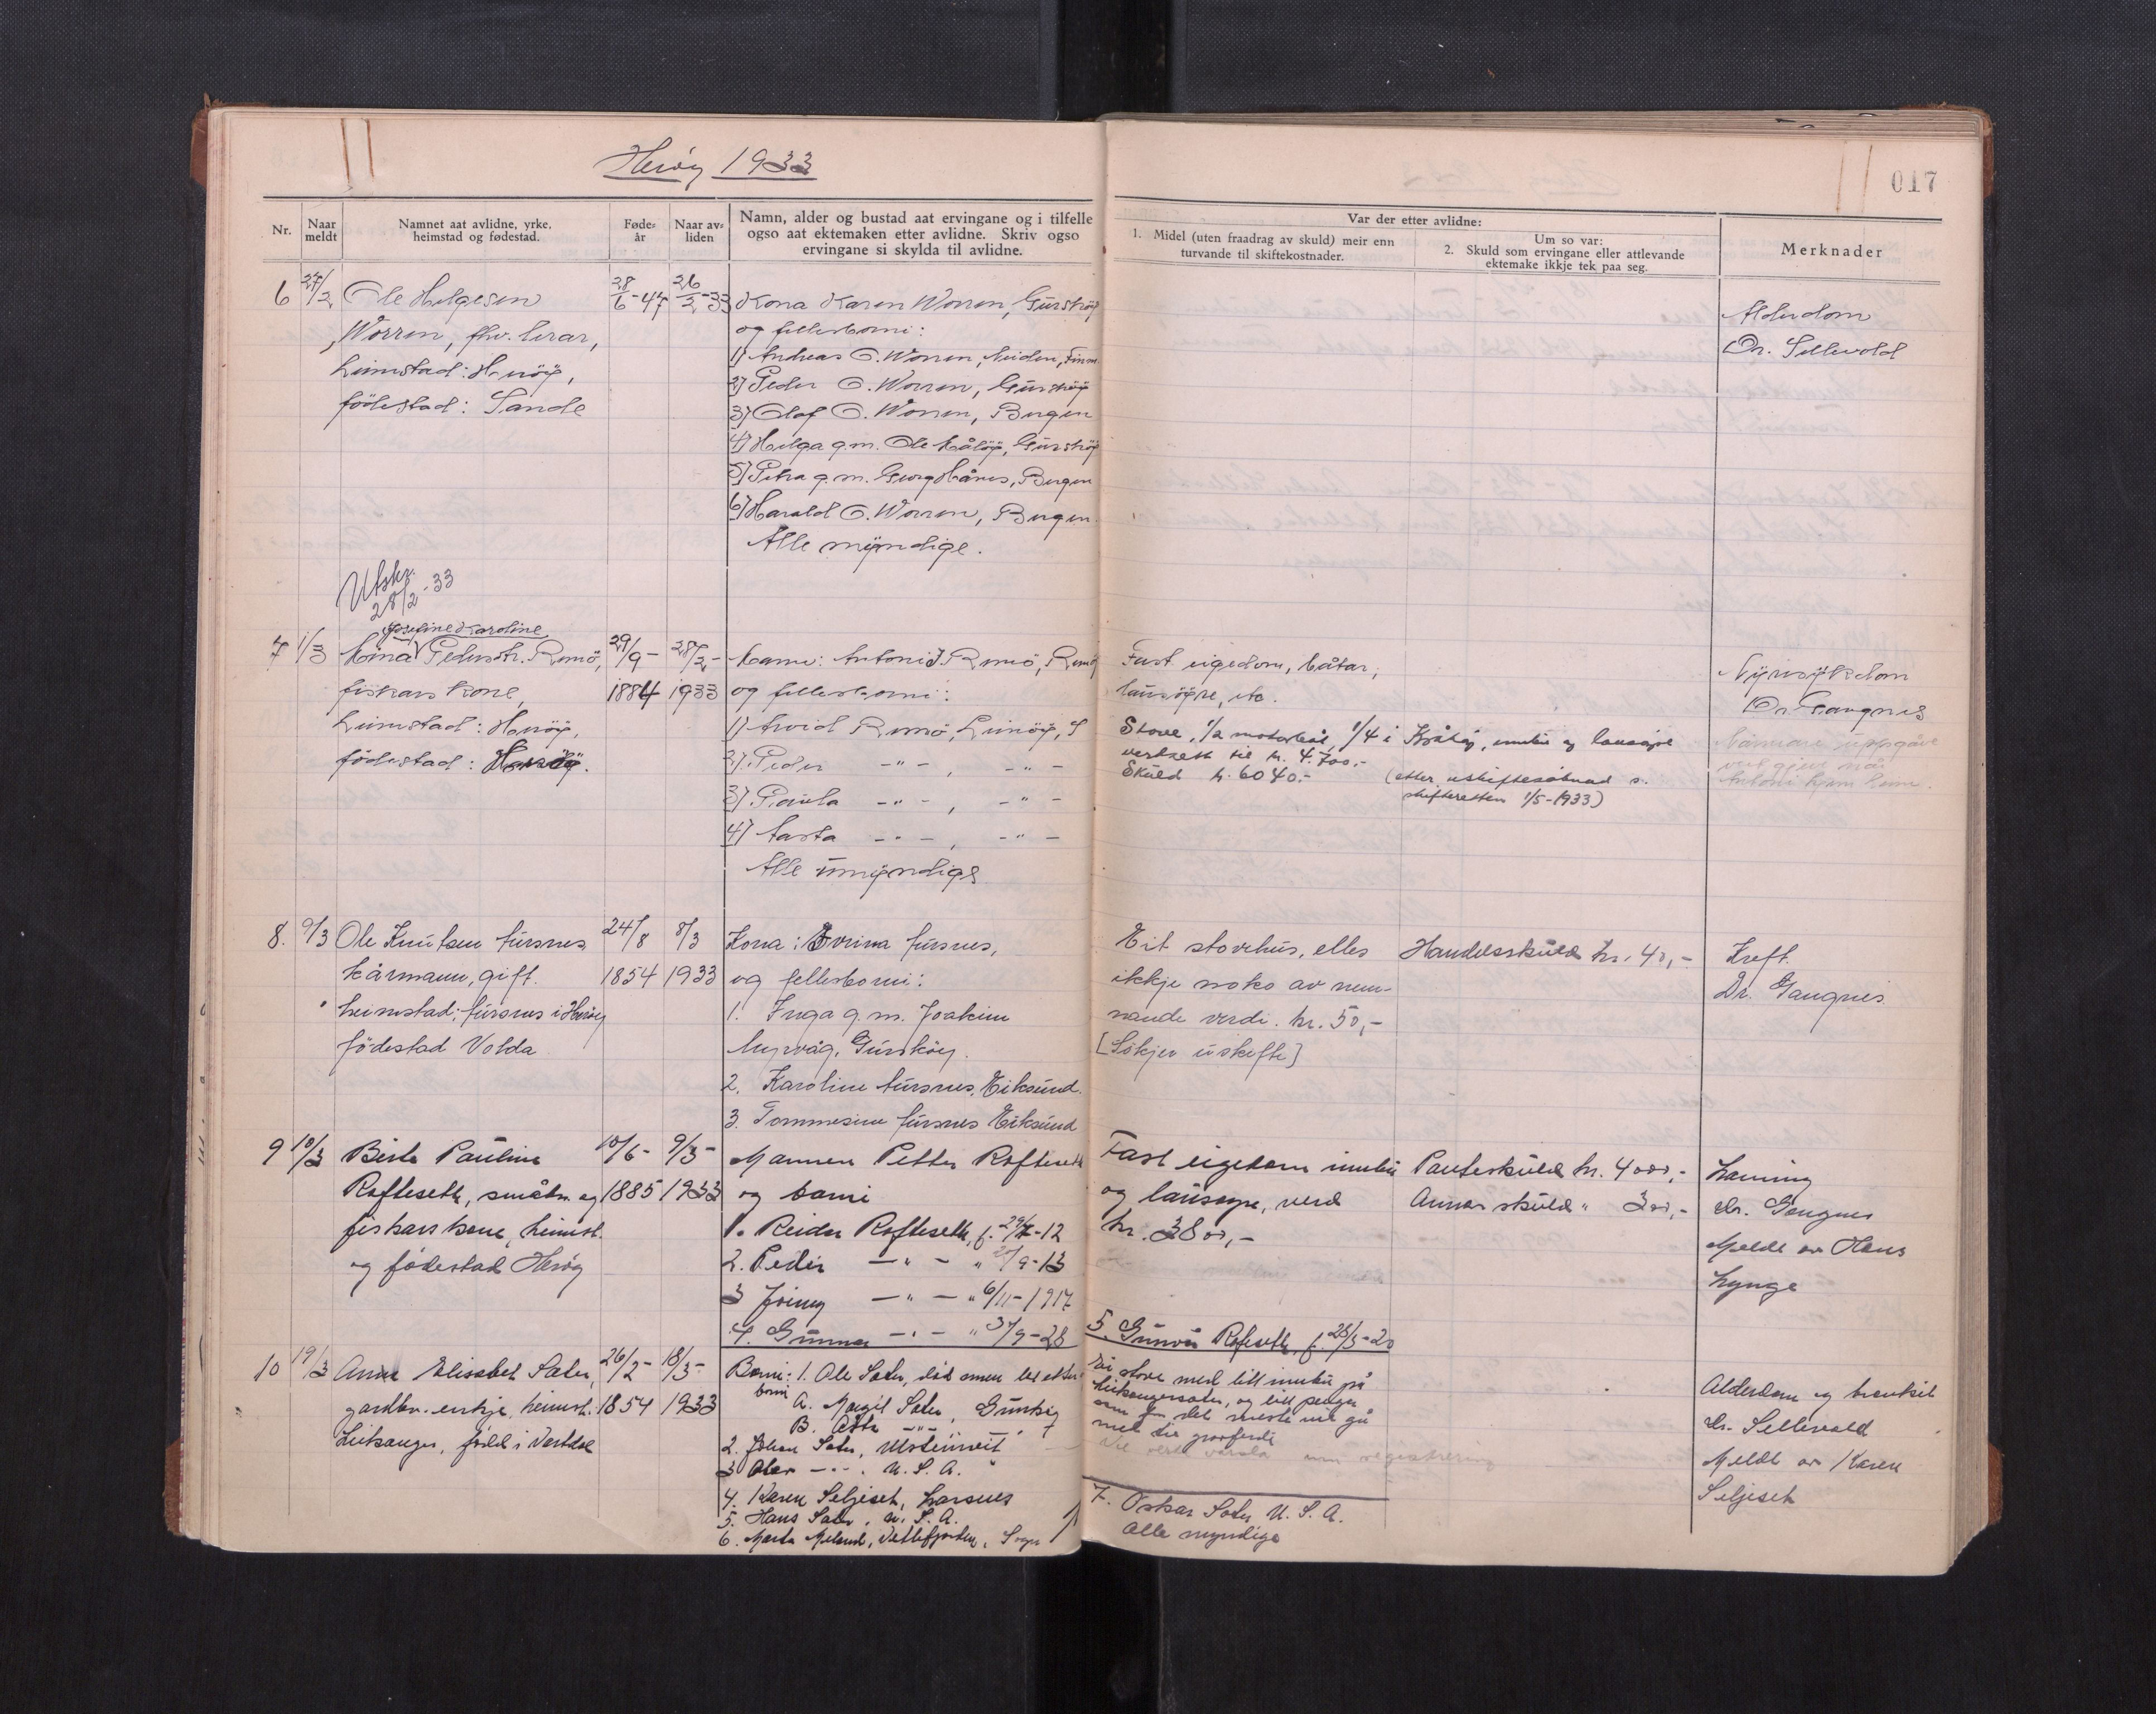 Herøy 1933
017
Nr.
Naar meldt
Namnet aat avlidne, yrke, heimstad og fødestad.
Føde-år
Naar av-liden
Namn, alder og bustad aat ervingane og i tilfelle
ogso aat ektemaken etter avlidne. Skriv ogso
ervingane si skylda til avlidne.
Var der etter avlidne:
1. Midel (uten fraadrag av skuld) meir enn
turvande til skiftekostnader.
Um so var:
2. Skuld som ervingane eller attlevande
ektemake ikkje tek paa seg.
Merknader
6 27/2 Ole Helgesen 28/6-47 26/2-33 Kona Karen Worren, Gurskøy
Worren, fhv. lærar, og fellesborni:
heimstad: Herøy, 1) Andreas O. Worren, Neiden, Finm.
fødestad: Sande 2) Peder O. Worren, Gurskøy
3) Olaf O. Worren, Bergen
4) Helga g.m. Ole Måløy, Gurskøy
5) Petra g.m. Georg Hånes, Bergen
6) Harald O. Worren, Bergen.
Alle myndige.
Alderdom
Dr. Sellevold
Utskr.
28/2-33
Josefine Karoline
7 1/3 Mina Pedersdtr. Remö, 29/9- 28/2- Mann: Antoni J Remö, Remö
fiskars kone, 1884 1933 og fellesborni:
heimstad: Herøy, 1) Arvid Remö, Leinöy, S
fødestad: Herøy. 2) Peder -"-, -"-
3) Paula -"-, -"-
4) Aasta -"-, -"-
Alle umyndige
Fast eigedom, båtar,
lausøyre, etc.
Stove, 1/2 motorbåt, 1/4 i Kråkøy, innbu og lausøyre
verdsett til kr. 4.700.-
Skuld kr. 6040.- (etter uskiftesøknad s.
skifteretten 1/5-1933)
Nyresykdom
Dr. Gangnes
Nærmare uppgåve
vert gjeve når
Antoni kjem heim.
8. 9/3 Ole Knutsen Furnes 24/8 8/3 Kona: Evrina Furnes,
kårmann, gift. 1854 1933 og fellesborni:
heimstad: Furnes i Herøy 1. Inga g.m. Joakim
fødestad Volda Myrvåg, Gurskøy.
2. Karoline Furnes, Eiksund.
3. Tommesine Furnes Eiksund
Eit stovehus, elles
ikkje noko av nem-
nande verdi. kr. 50,-
[Søkjer uskifte]
Handelsskuld kr. 40,-
Kreft.
Dr. Gangnes
9 10/3 Berte Pauline 10/6- 9/3- Mannen Petter Rafteseth
Rafteseth, småbr. og 1885 1933 og borni
fiskars kone, heimst. 1. Reidar Rafteseth, f. 29/7-12
og fødestad Herøy 2. Peder -"- " /9-13
3 Jenny -"- " 6/11-1917
4. Gunnar -"- " /9-28
Fast eigedom innbu
og lausøyre, verd
kr. 3800,-
5. Gunvor Rafteseth, f. 28/3-20
Panteskuld kr. 4000,-
Annar skuld " 300,-
Laming
dr. Gangnes
Meldt av Hans
Lynge
10 19/3 Anna Elisabet Sæter, 26/2- 18/3- Borni: 1. Ole Sæter, död men let etter
gardbr. enkje, heimst. 1854 1933 borni A. Margit Sæter, Gurskøy
Leikanger, född i Vartdal B. Asta -"-
2. Johan Sæter, Ulsteinvik
3 Olav -"-, U.S.A.
4. Karen Seljeset, Larsnes
5. Hans Sæter, U.S.A.
6. Marta Meland, Vetlefjorden, Sogn
Ei stove med litt innbu på
Leikangersæter, og litt pengar
som for det meste vil gå
med til gravferdi
Dei vert varsla um registrering
7. Oskar Sæter U.S.A.
Alle myndige
Alderdom og bronkit
dr. Sellevold
Meldt av Karen
Seljeset